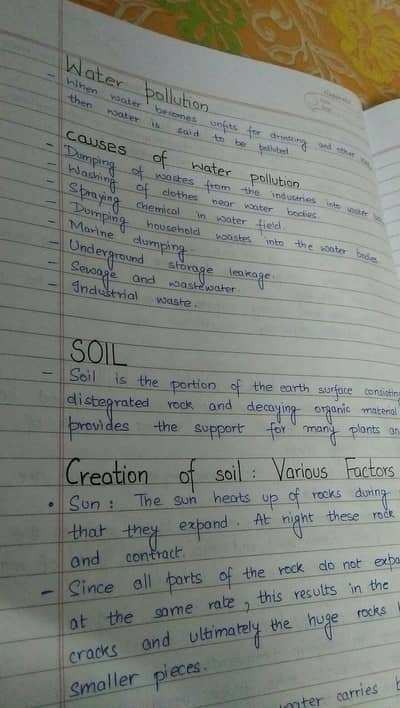 Water pollution
- When water becomes unfits for drinking and other
then water is said to be polluted
causes of water pollution
- Dumping of wastes from the industries into water
- Washing of clothes near water bodies.
- Spraying chemical in water field.
- Dumping household wastes into the water bodies
- Marine dumping.
- Underground storage leakage.
- Sewage and wastewater.
- Industrial waste.
SOIL
- Soil is the portion of the earth surface consisting
distegrated rock and decaying organic material
provides the support for many plants an
Creation of soil : Various Factors
• Sun : The sun heats up of rocks during
that they expand. At night these rock
and contract.
- Since all parts of the rock do not expa
at the same rate, this results in the
cracks and ultimately the huge rocks
smaller pieces.
water carries